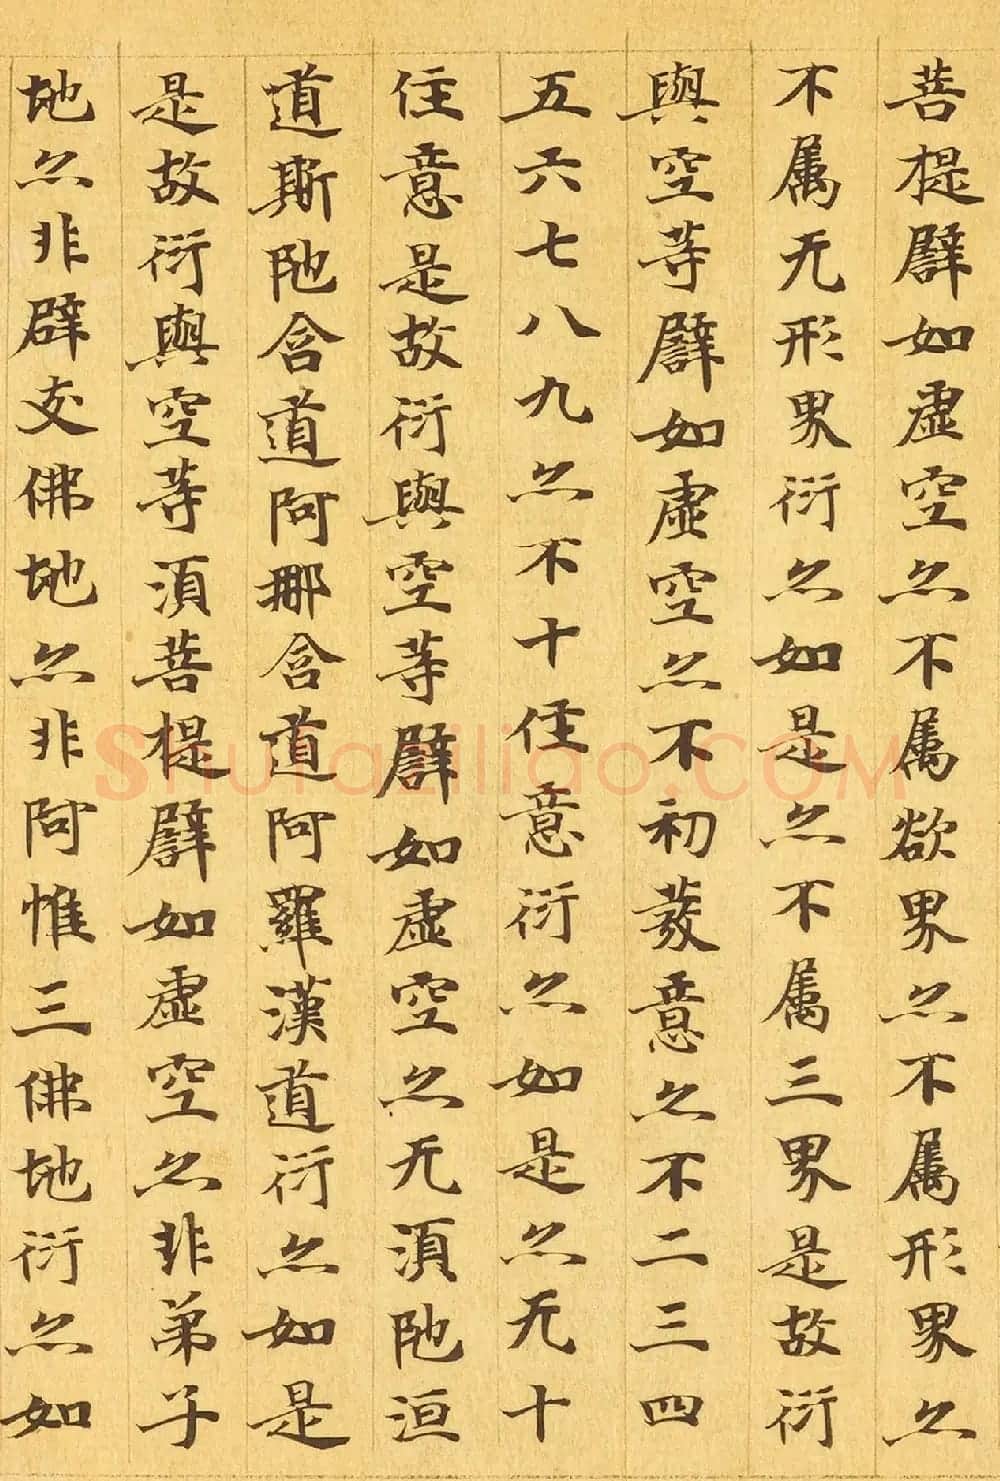 菩提譬如虛空亦不属欲界亦不属形界亦
不属无形界衍亦如是亦不属三界是故衍
與空等譬如虛空亦不初發意亦不二三四
五六七八九亦不十住意衍亦如是亦无十
住意是故衍與空等譬如虛空亦无須陀洹
道斯陀含道阿那含道阿羅漢道衍亦如是
是故衍與空等須菩提譬如虛空亦非弟子
地亦非辟支佛地亦非阿惟三佛地衍亦如
Shufaziliao.COM